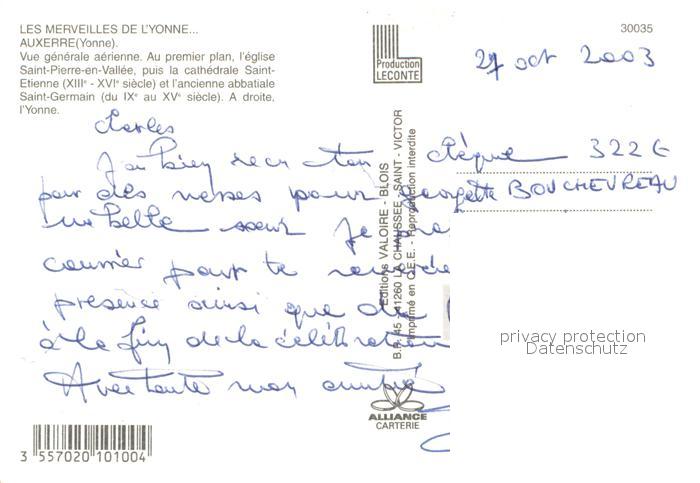 LES MERVEILLES DE L'YONNE...
AUXERRE(Yonne).
Vue générale aérienne. Au premier plan, l'église
Saint-Pierre-en-Vallée, puis la cathédrale Saint-
Etienne (XIIIe - XVIe siècle) et l'ancienne abbatiale
Saint-Germain (du IXe au XVe siècle). A droite,
l'Yonne.
Production
LECONTE
30035
27 oct 2003
J'ai bien reçu ton chèque 322 €
pour des messes pour Georgette BOUCHEVREAU
belle sœur Je
courrier pour te
presence ainsi que de
à la fin de la célébration
Avec toute mon amitié
Editions VALOIRE - BLOIS
B.P. 45 - 41260 LA CHAUSSEE - SAINT - VICTOR
Imprimé en C.E.E. - Reproduction interdite
privacy protection
Datenschutz
ALLIANCE
CARTERIE
3 557020 101004